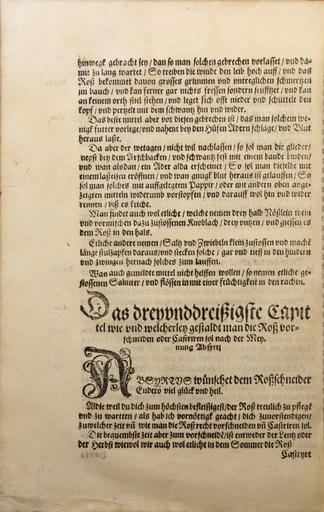 hinwegk gebracht sey / dan so man solchen gebrechen vorlasset / vnd da-
mit zu lang wartet / So treiben die winde den leib hoch auff / vnd das
Roß bekommet dauon grosses grimmen vnd vntreglichen schmertzen
im bauch / vnd kan ferner gar nichts fressen sondern seufftzet / vnd kan
an keinem orth stil stehen / vnd leget sich offt nieder vnd schüttelt den
kopf / vnd pertzelt mit dem schwantz hin vnd wider.
Das beste mittel aber vor diesen gebrechen ist / das man solchem we-
nigk futter vorlege / vnd nahent bey den Hüfen Adern schlage / vnd Blut
heraus lasse.
Da aber der wetagen / nicht wil nachlassen / so sol man die glieder /
nepst bey dem Arschbacken / vnd schwantz fest mit einem bande binden /
vnd wan alsdan / ein Ader alda erscheinet / So sol man dieselbe mit
einem laßeisen eröffnen / vnd wan gnugk blut heraus ist gelauffen / So
sol man solches mit auffgelegtem Pappir / oder mit andern oben ange-
zeigten mitteln widerumb vorstopfen / vnd darauff wol hin vnd wider
rennen / biß es feicht.
Man findet auch wol etliche / welche nemen drey halb Nößlein wein
vnd vormischen dazu zustossenen Knoblach / drey vntzen / vnd giessen es
dem Roß in den hals.
Etliche andere nemen / Saltz vnd Zwiebeln klein zustossen vnd machē
lange stulzapfen daraus / vnd stecken solche / gar vnd tieff in den hindern
vnd zwingen hernach solches zum lauffen.
Wan auch gemeldte mittel nicht helffen wollen / so nemen etliche ge-
stossenen Salniter / vnd flössen in mit einer feuchtigkeit in den rachen.
Das dreyvnddreißigste Capit
tel wie vnd welcherley gestaldt man die Roß vor-
schneiden oder Castriren sol nach der Mey-
nung Absyrti
ABSYRTVS wünschet dem Roßschneider
Eudero viel glück vnd heil.
Aldie weil du dich zum höchsten befleissigest / der Roß treulich zu pflegē
vnd zu wartten / als hab ich vornöttigk geacht / dich zuuorstendigen /
zu welcher zeit vñ wie man die Roß recht vorschneiden vñ Castriren sol.
Die bequembste zeit aber zum vorschneidē / ist entweder der Lentz oder
der Herbst wiewol wir auch wol etlicht in dem Sommer die Roß
Castryrt